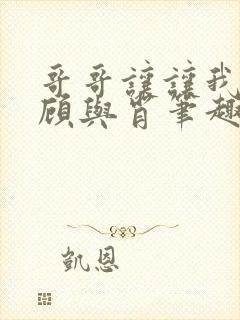 哥哥讓讓我
顧與肖筆趣
凱恩